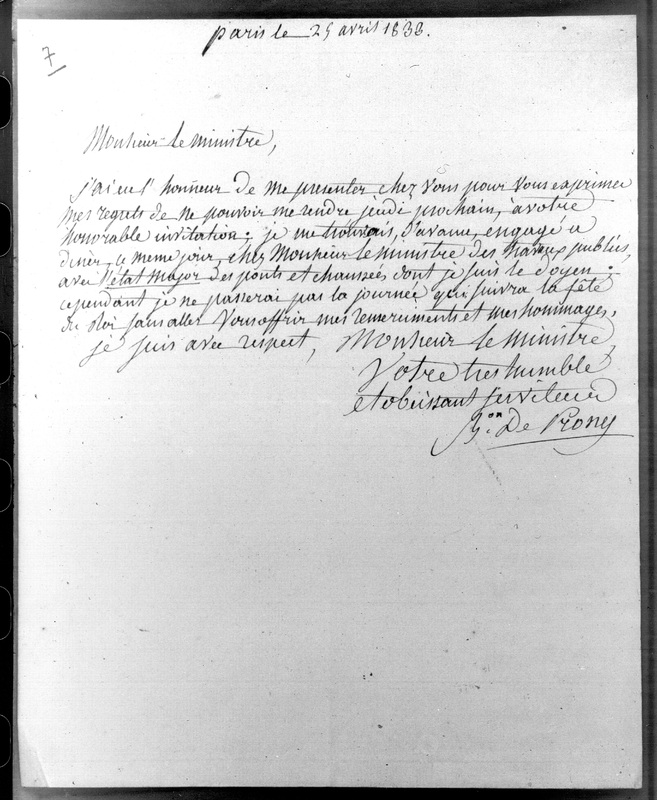 7
paris le 25 avril 1838.
Monsieur le ministre,
j'ai eu l'honneur de me presenter chez vous pour vous exprimer
mes regrets de ne pouvoir me rendre jeudi prochain, à votre
honorable invitation; je me trouvais, d'avance, engagé a
diner, ce meme jour, chez Monsieur le ministre des travaux publics,
avec l'état major des ponts et chaussées dont je suis le doyen:
cependant je ne passerai pas la journée qui suivra la fête
du Roi sans aller vous offrir mes remerciments et mes hommages.
je suis avec respect, Monsieur le ministre,
Votre tres humble
et obeissant serviteur
Bon. De Prony